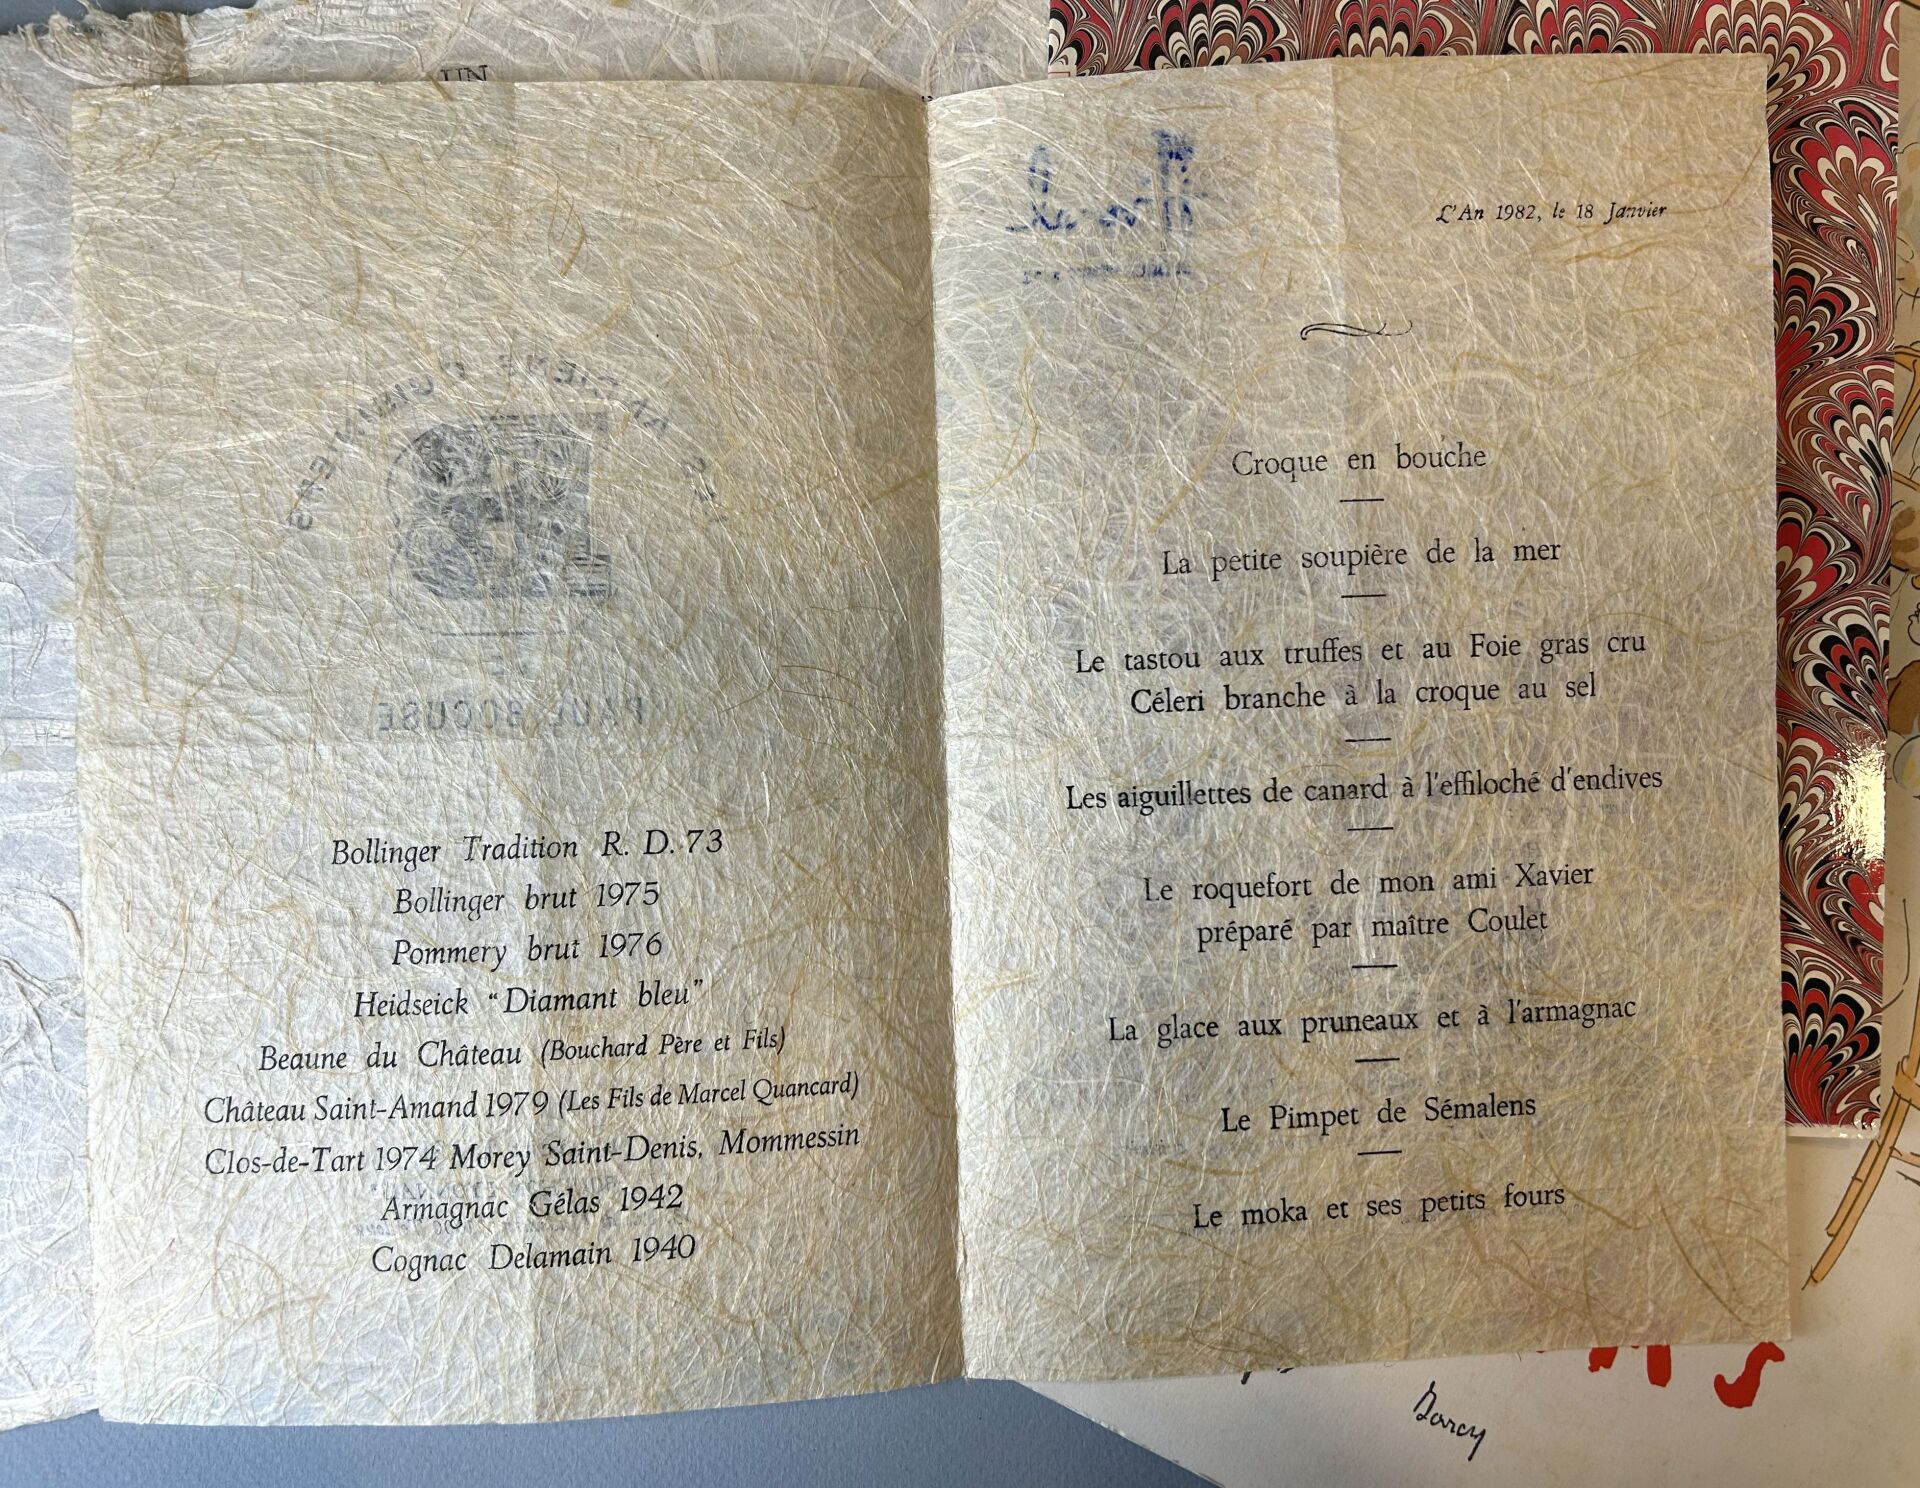 UN
PAUL BOCUSE
Bollinger Tradition R. D. 73
Bollinger brut 1975
Pommery brut 1976
Heidseick “Diamant bleu”
Beaune du Château (Bouchard Père et Fils)
Château Saint-Amand 1979 (Les Fils de Marcel Quancard)
Clos-de-Tart 1974 Morey Saint-Denis, Mommessin
Armagnac Gélas 1942
Cognac Delamain 1940
L'An 1982, le 18 Janvier
Croque en bouche
La petite soupière de la mer
Le tastou aux truffes et au Foie gras cru
Céleri branche à la croque au sel
Les aiguillettes de canard à l'effiloché d'endives
Le roquefort de mon ami Xavier
préparé par maître Coulet
La glace aux pruneaux et à l'armagnac
Le Pimpet de Sémalens
Le moka et ses petits fours
Darcy